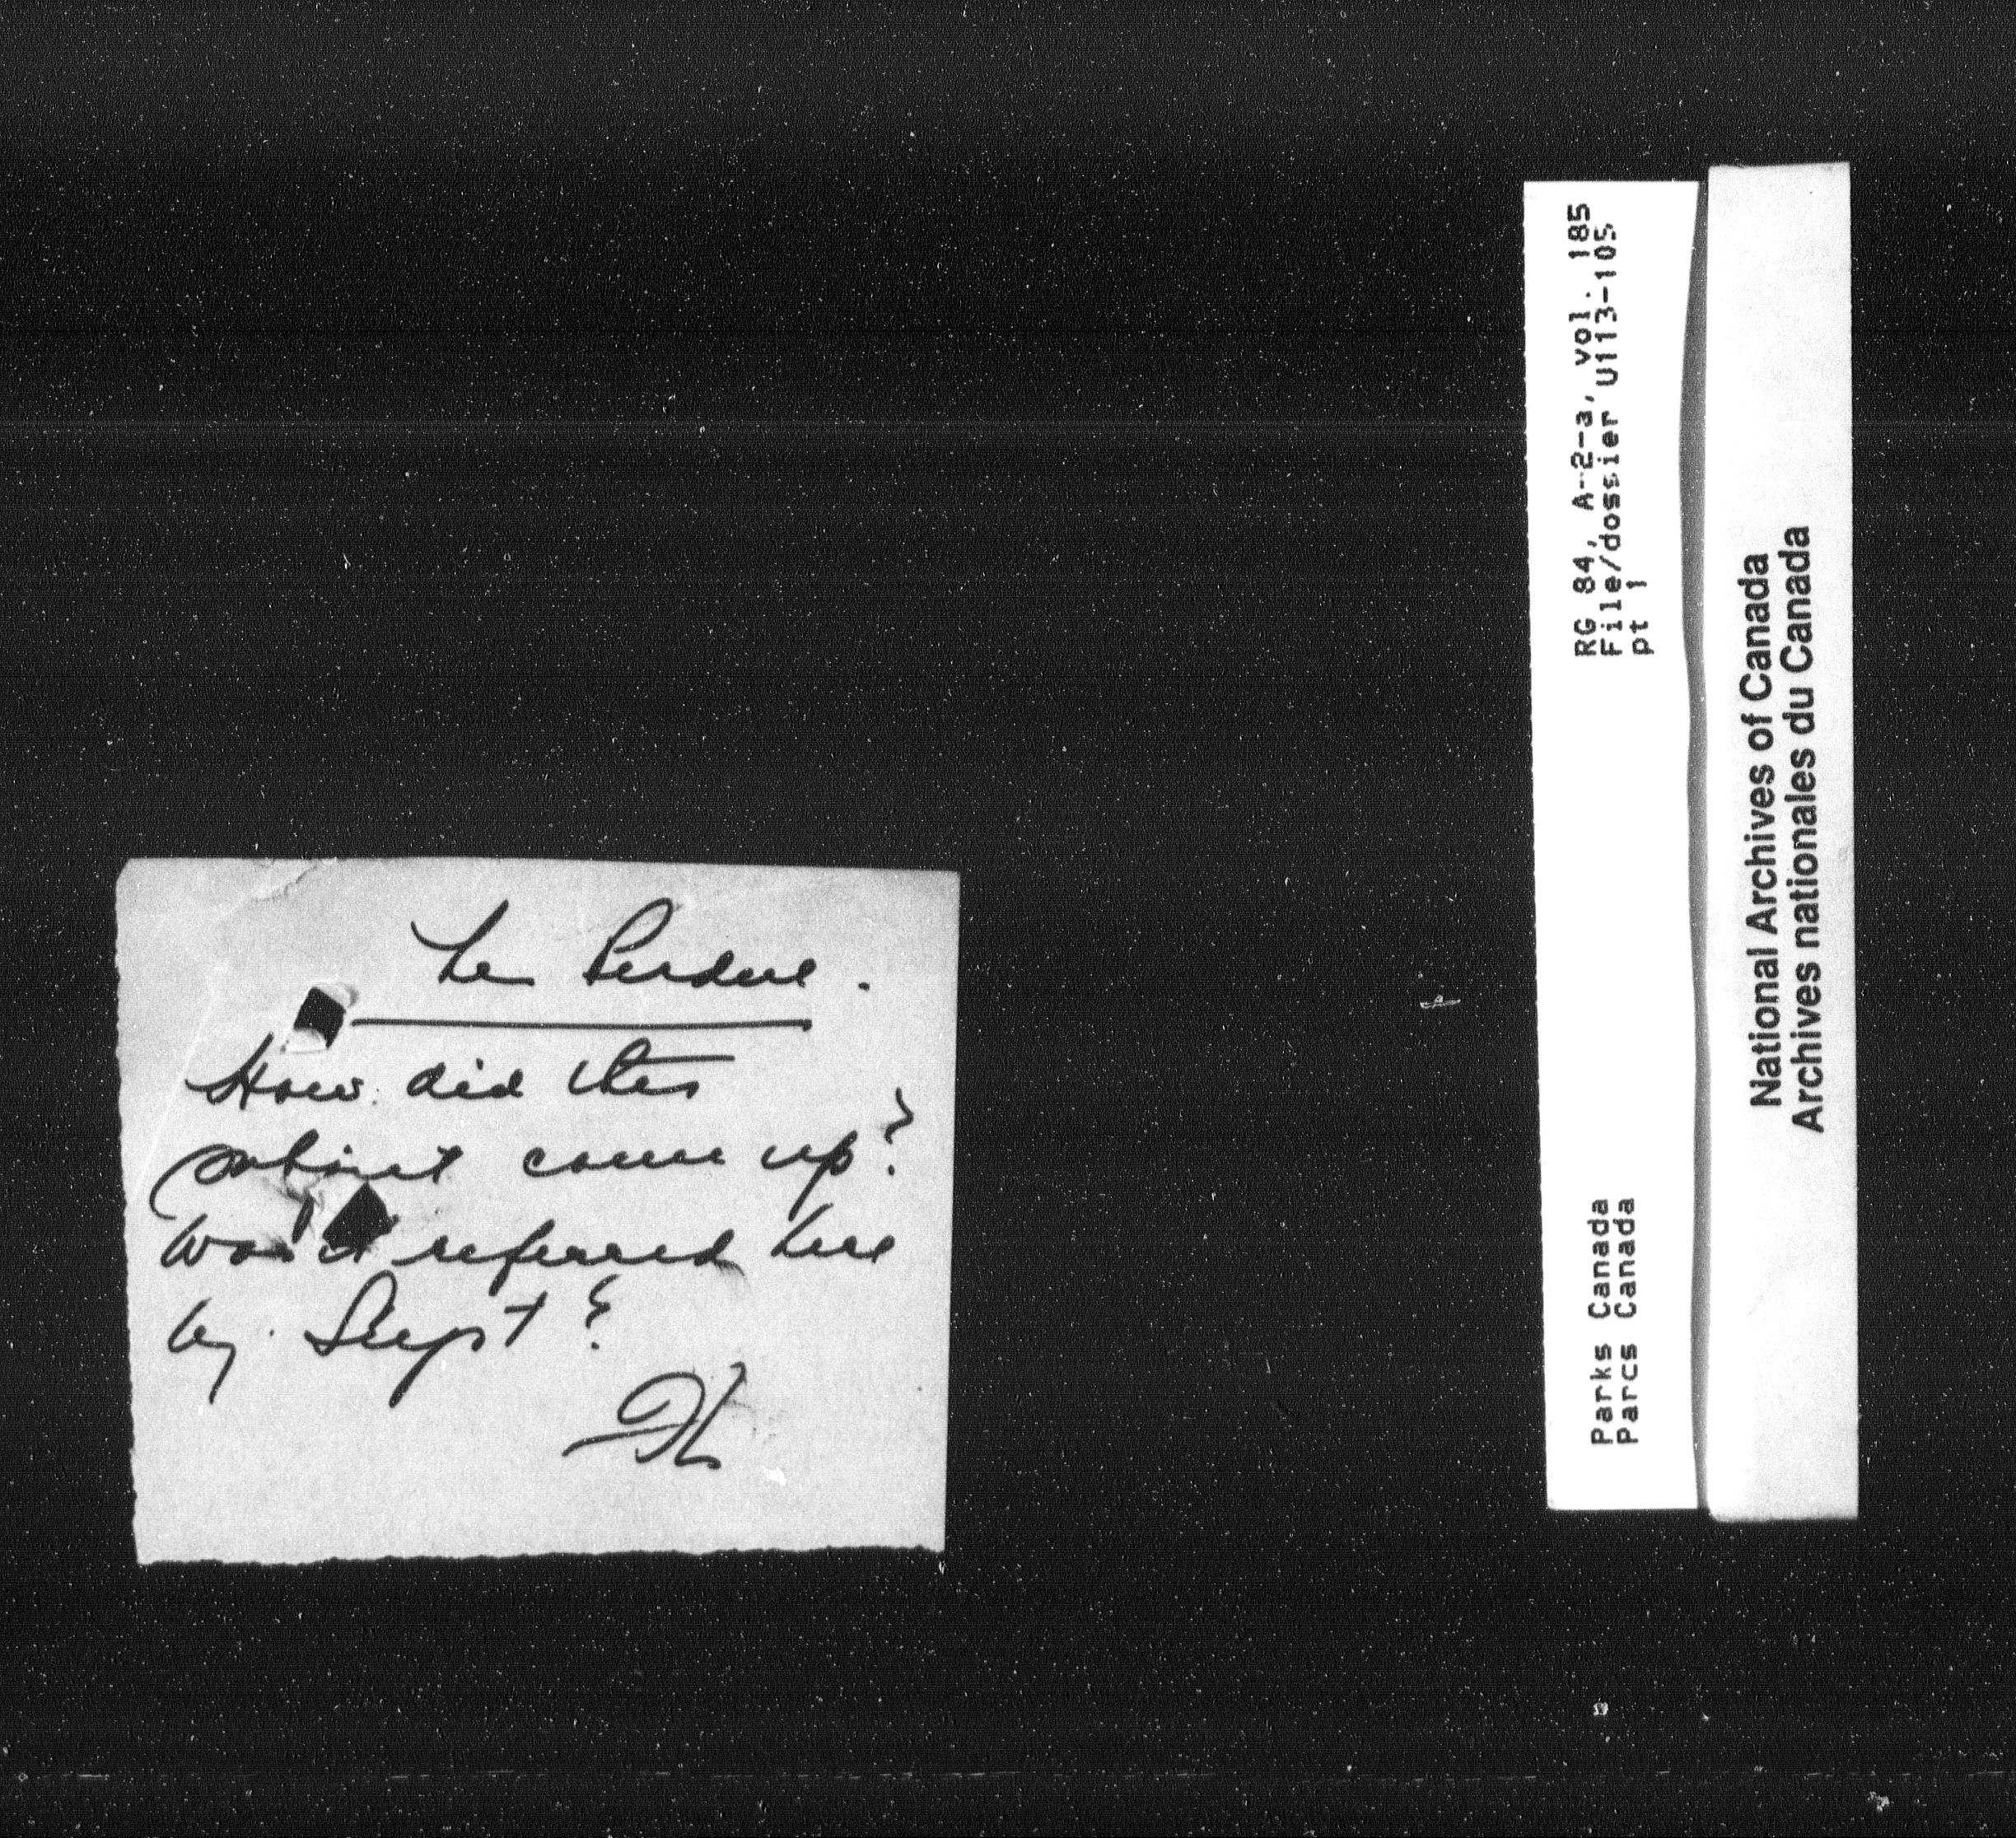 Perdue.
How did this
subject come up?
Was it referred here
by Supt?
RG 84, A-2-a, vol. 185
File/dossier U113-105
pt 1
Parks Canada
Parcs Canada
National Archives of Canada
Archives nationales du Canada